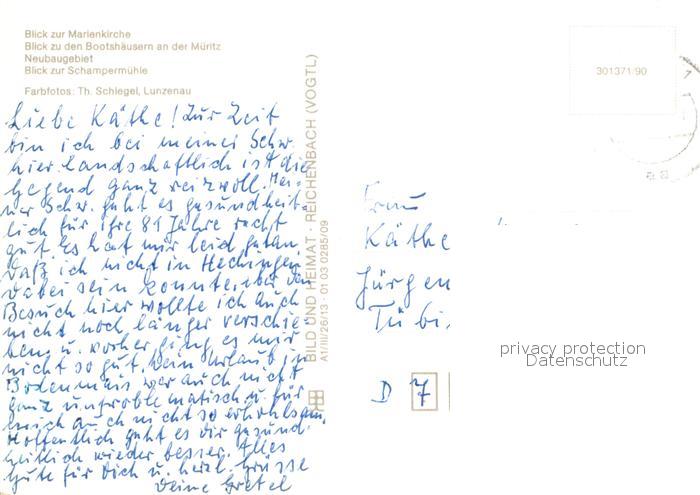 Blick zur Marienkirche
Blick zu den Bootshäusern an der Müritz
Neubaugebiet
Blick zur Schampermühle
Farbfotos: Th. Schlegel, Lunzenau
Liebe Käthe! Zur Zeit
bin ich bei meiner Schw.
hier. Landschaftlich ist die
Gegend ganz reizvoll. Mei-
ner Schw. geht es gesundheit-
lich für ihre 81 Jahre recht
gut. Es hat mir leid getan,
daß ich nicht in Hechingen
dabei sein konnte, aber den
Besuch hier wollte ich auch
nicht noch länger verschie-
ben u. vorher ging es mir
nicht so gut. Mein Urlaub in
Bodenmais war auch nicht
ganz unproblematisch u. für
mich auch nicht so erholsam.
Hoffentlich geht es Dir gesund-
heitlich wieder besser. Alles
Gute für Dich u. herzl. Grüsse
Deine Gretel
BILD UND HEIMAT · REICHENBACH (VOGTL)
A1/III/26/13 · 01 03 0285/09
301371/90
Frau
Käthe
Jürgen
Tübi
D 7
privacy protection
Datenschutz